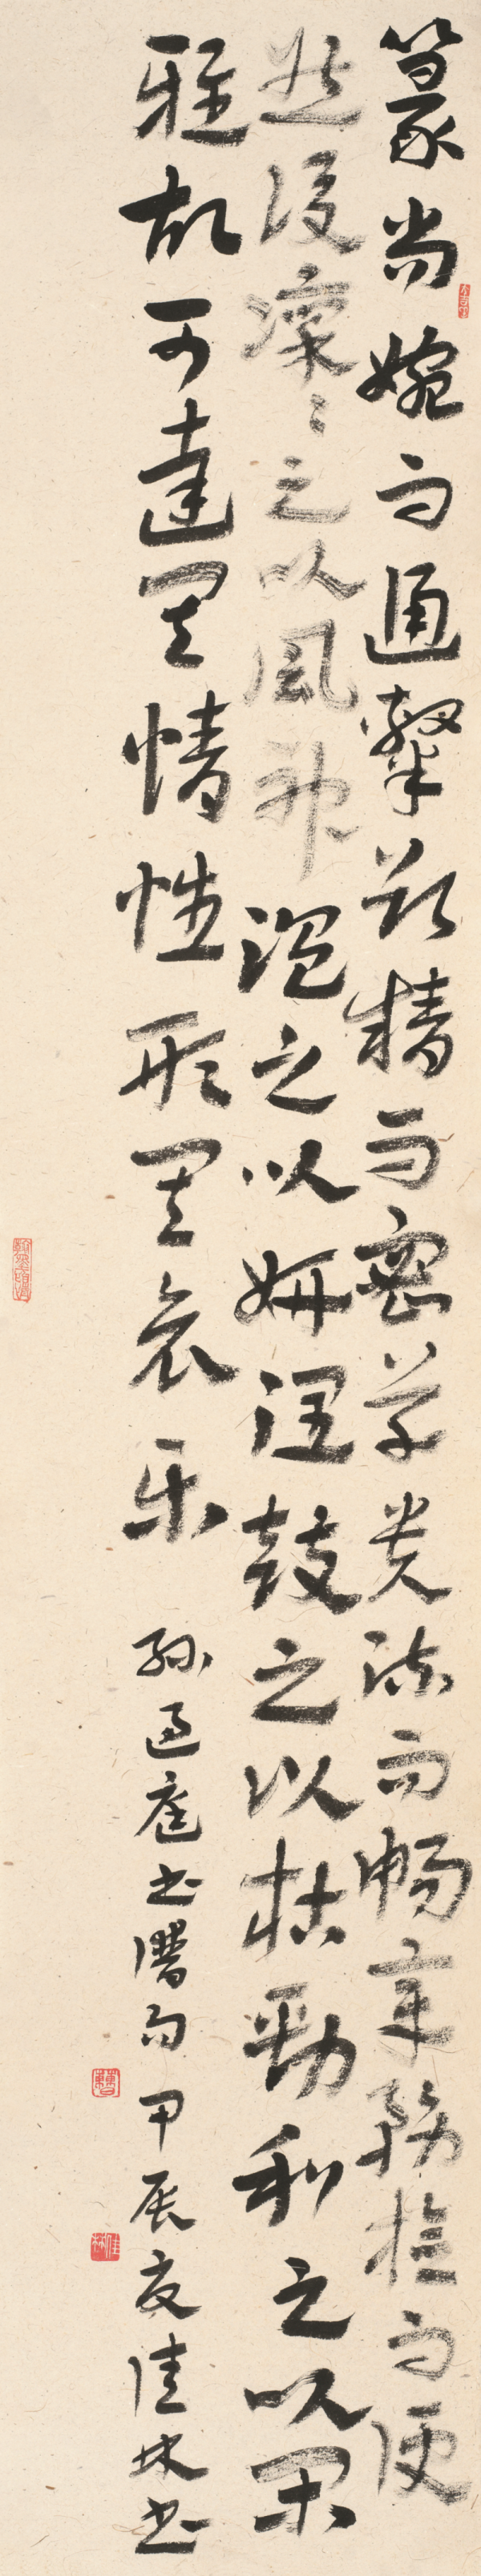 篆尚婉而通隸欲精而密草貴流而暢章務檢而便
然後凜々之以風神溫之以妍潤鼓之以枯勁和之以閑
雅故可達其情性形其哀樂 孫過庭書譜句甲辰夏佳林書